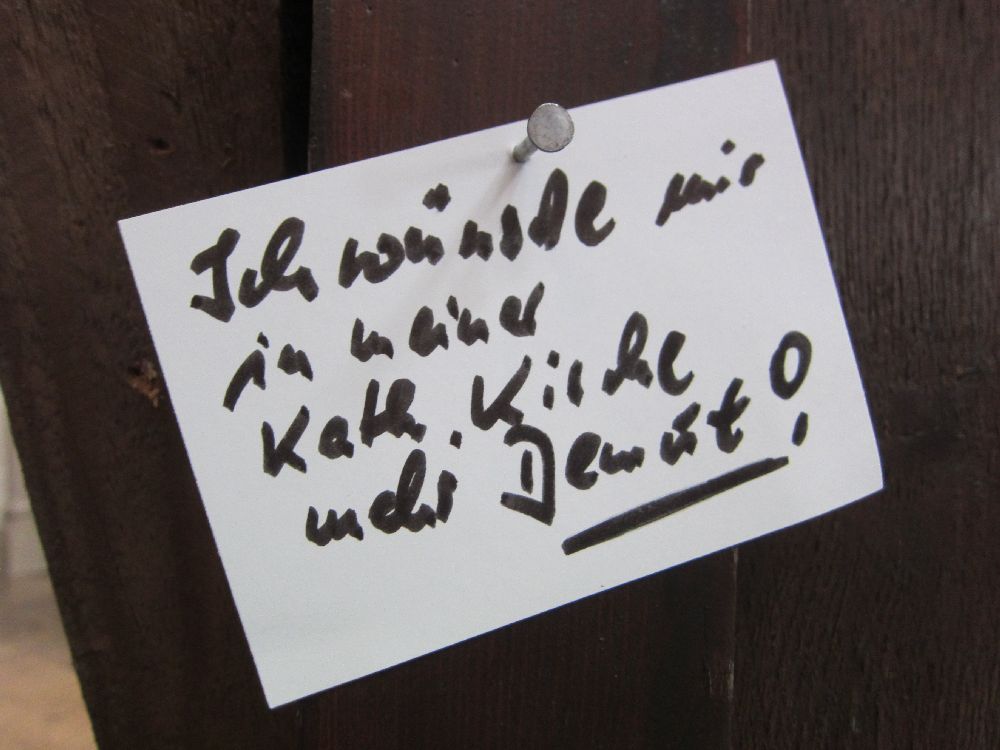 Ich wünsche mir
in meiner
Kath. Kirche
mehr Demut!